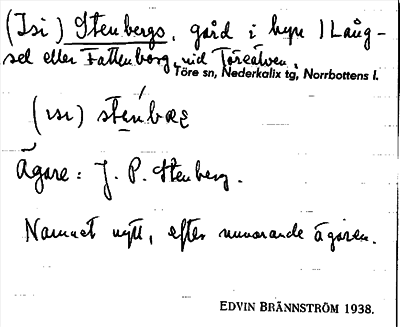 (Isi) Stenbergs, gård i byn Lång-
sel eller Fattenborg, vid Töreälven.
Töre sn, Nederkalix tg, Norrbottens l.
(ɪsɪ) stén̄bæ
Ägare: J. P. Stenberg.
Namnet nytt, efter nuvarande ägaren.
EDVIN BRÄNNSTRÖM 1938.